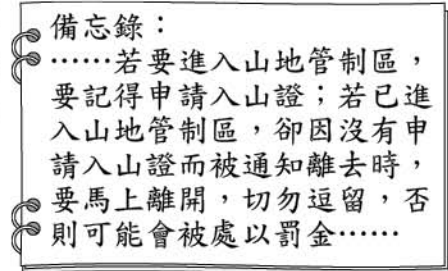 備忘錄：
……若要進入山地管制區，
要記得申請入山證；若已進
入山地管制區，卻因沒有申
請入山證而被通知離去時，
要馬上離開，切勿逗留，否
則可能會被處以罰金……